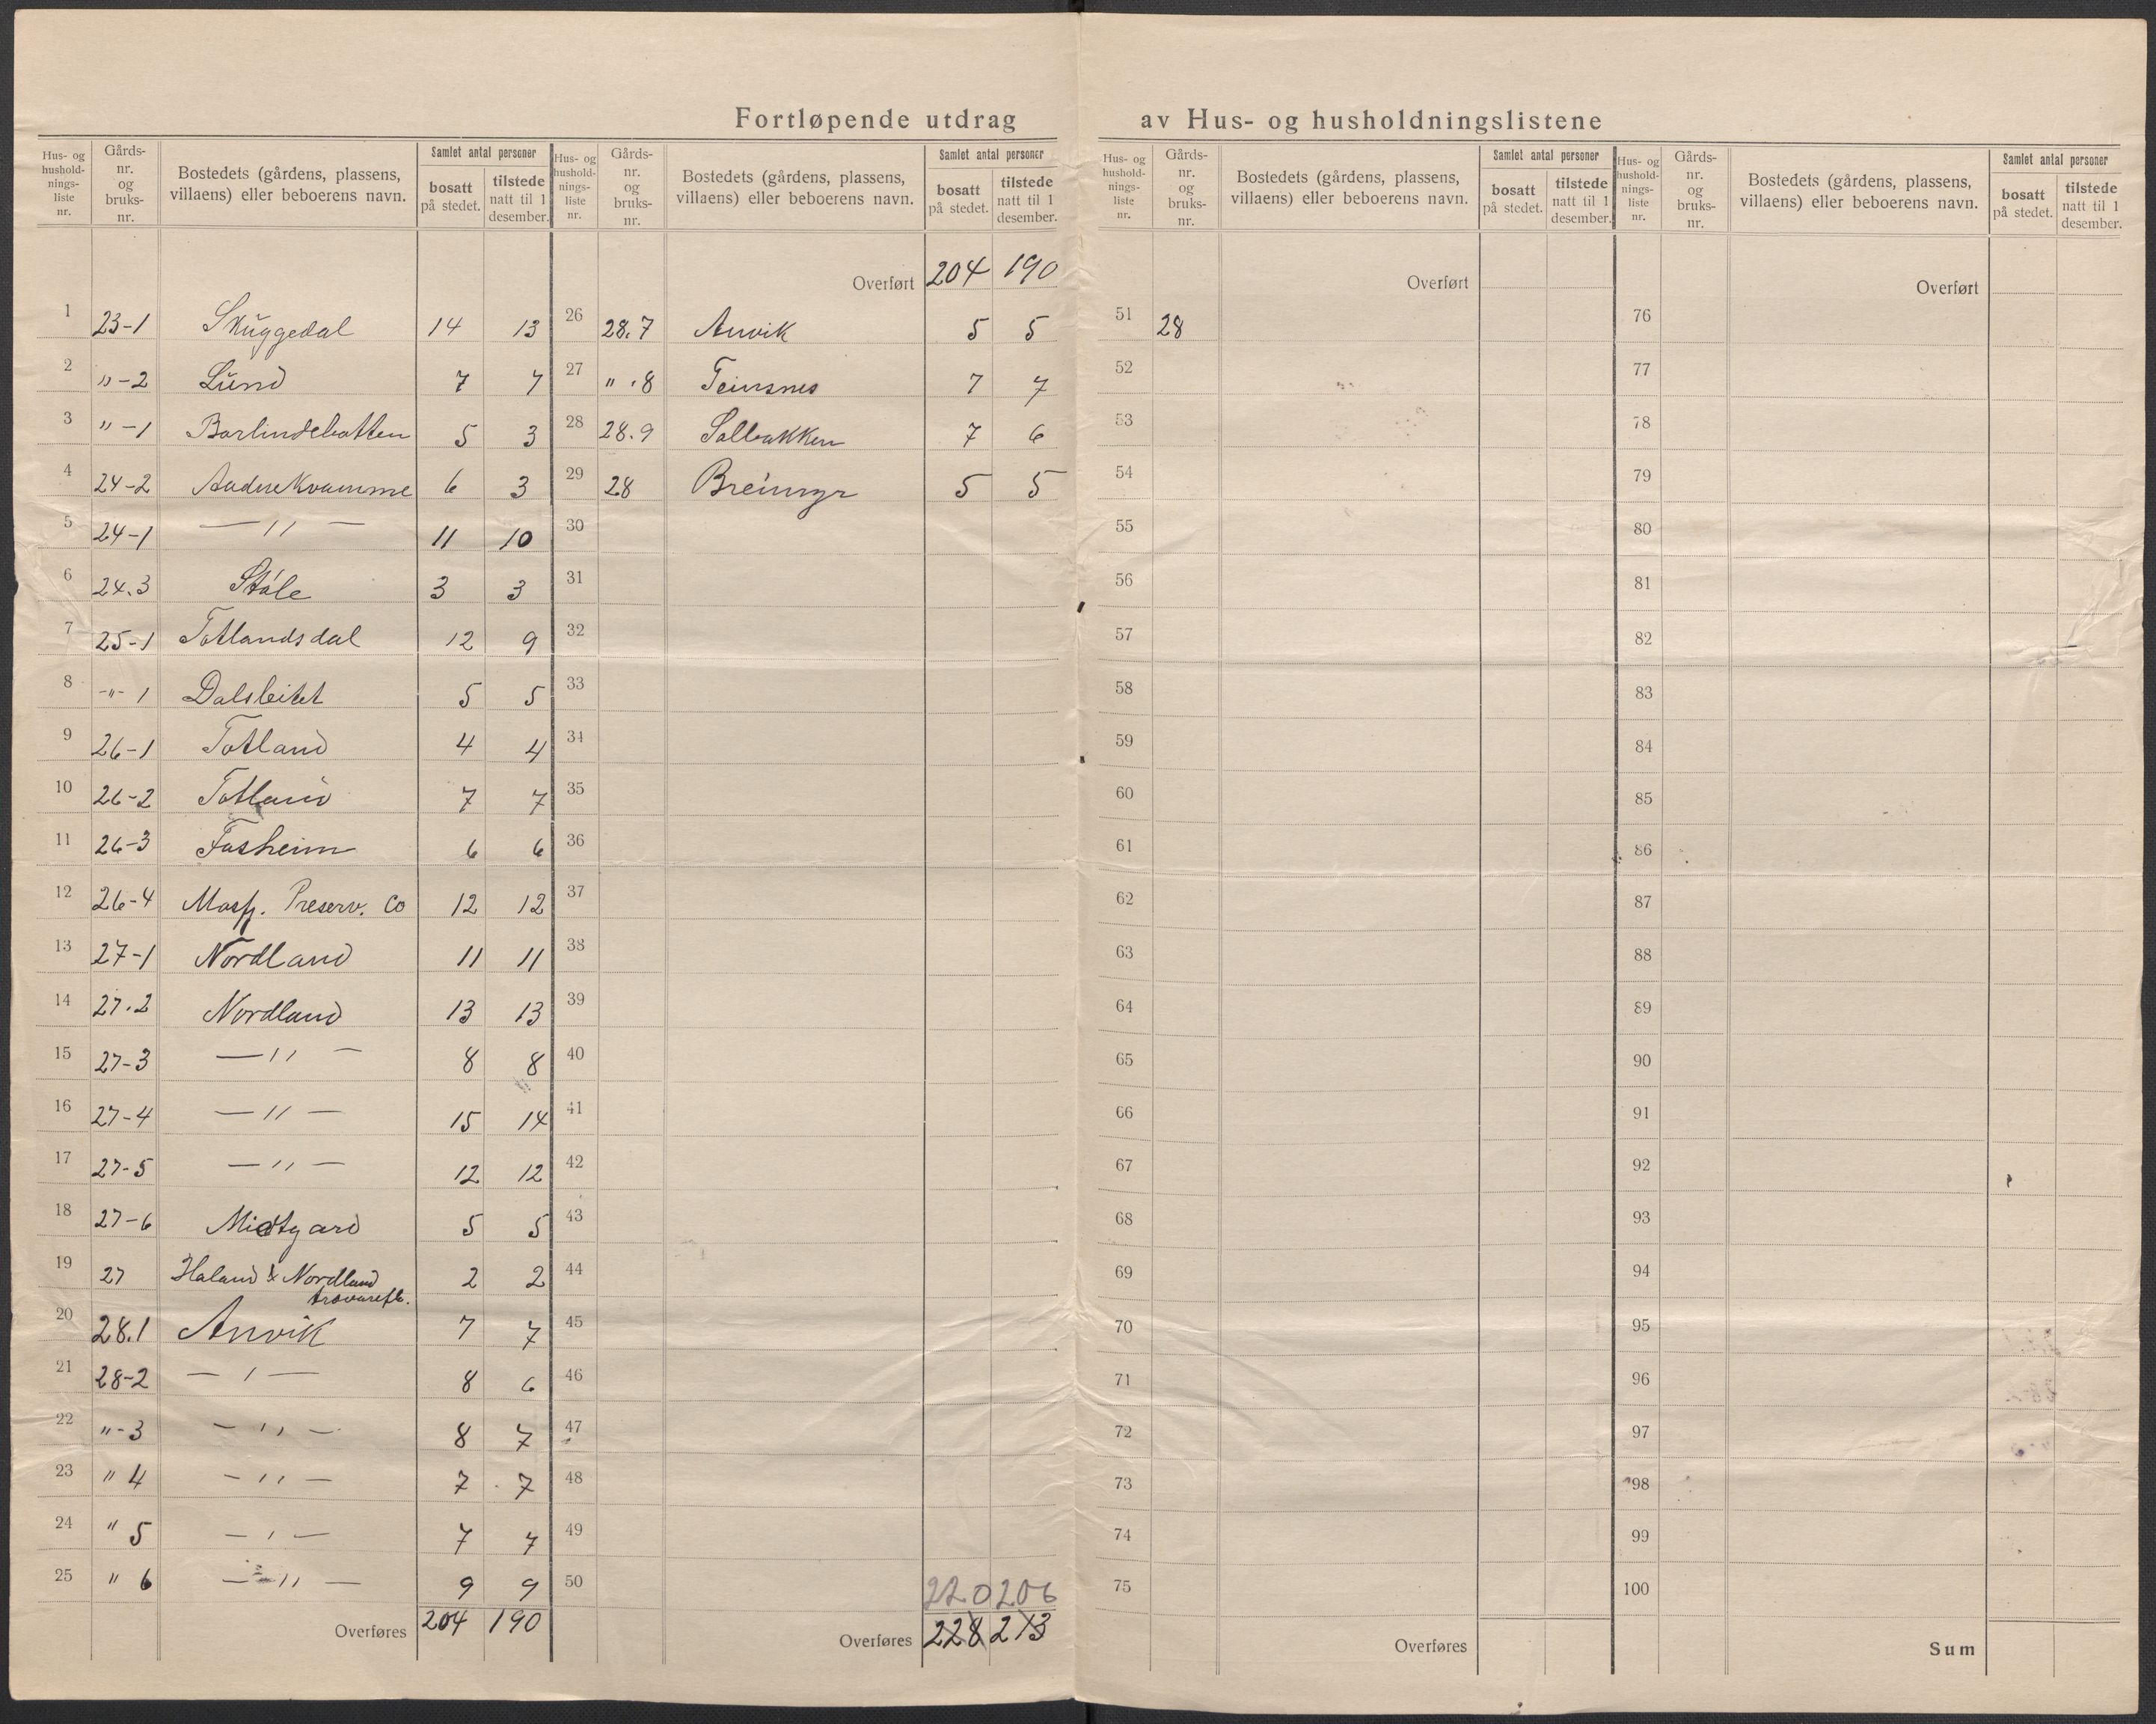 Fortløpende utdrag av Hus- og husholdningslistene
Hus- og hushold-nings-liste nr. Gårds-nr. og bruks-nr. Bostedets (gårdens, plassens, villaens) eller beboerens navn. Samlet antal personer bosatt på stedet. tilstede natt til 1 desember.
1 23-1 Skuggedal 14 13
2 " -2 Lund 7 7
3 " -1 Barlindebotten 5 3
4 24-2 Andrekvamme 6 3
5 24-1 — " — 11 10
6 24.3 Støle 3 3
7 25-1 Totlandsdal 12 9
8 -"- 1 Dalsleitet 5 5
9 26-1 Totland 4 4
10 26-2 Totland 7 7
11 26-3 Fosheim 6 6
12 26-4 Masf. Preserv. Co 12 12
13 27-1 Nordland 11 11
14 27.2 Nordland 13 13
15 27-3 — " — 8 8
16 27-4 — " — 15 14
17 27-5 — " — 12 12
18 27-6 Midtgard 5 5
19 27 Haland & Nordland 2 2
20 28.1 Anvik 7 7
21 28-2 — " — 8 6
22 " -3 — " — 8 7
23 " 4 — " — 7 7
24 " 5 — " — 7 7
25 " 6 — " — 9 9
Overføres 204 190
Hus- og hushold-nings-liste nr. Gårds-nr. og bruks-nr. Bostedets (gårdens, plassens, villaens) eller beboerens navn. Samlet antal personer bosatt på stedet. tilstede natt til 1 desember.
Overført 204 190
26 28.7 Anvik 5 5
27 " .8 Teinsnes 7 7
28 28.9 Solbakken 7 6
29 28 Breimyr 5 5
30
31
32
33
34
35
36
37
38
39
40
41
42
43
44
45
46
47
48
49
50
220 206
Overføres 228 213
Hus- og hushold-nings-liste nr. Gårds-nr. og bruks-nr. Bostedets (gårdens, plassens, villaens) eller beboerens navn. Samlet antal personer bosatt på stedet. tilstede natt til 1 desember.
Overført
51 28
52
53
54
55
56
57
58
59
60
61
62
63
64
65
66
67
68
69
70
71
72
73
74
75
Overføres
Hus- og hushold-nings-liste nr. Gårds-nr. og bruks-nr. Bostedets (gårdens, plassens, villaens) eller beboerens navn. Samlet antal personer bosatt på stedet. tilstede natt til 1 desember.
Overført
76
77
78
79
80
81
82
83
84
85
86
87
88
89
90
91
92
93
94
95
96
97
98
99
100
Sum